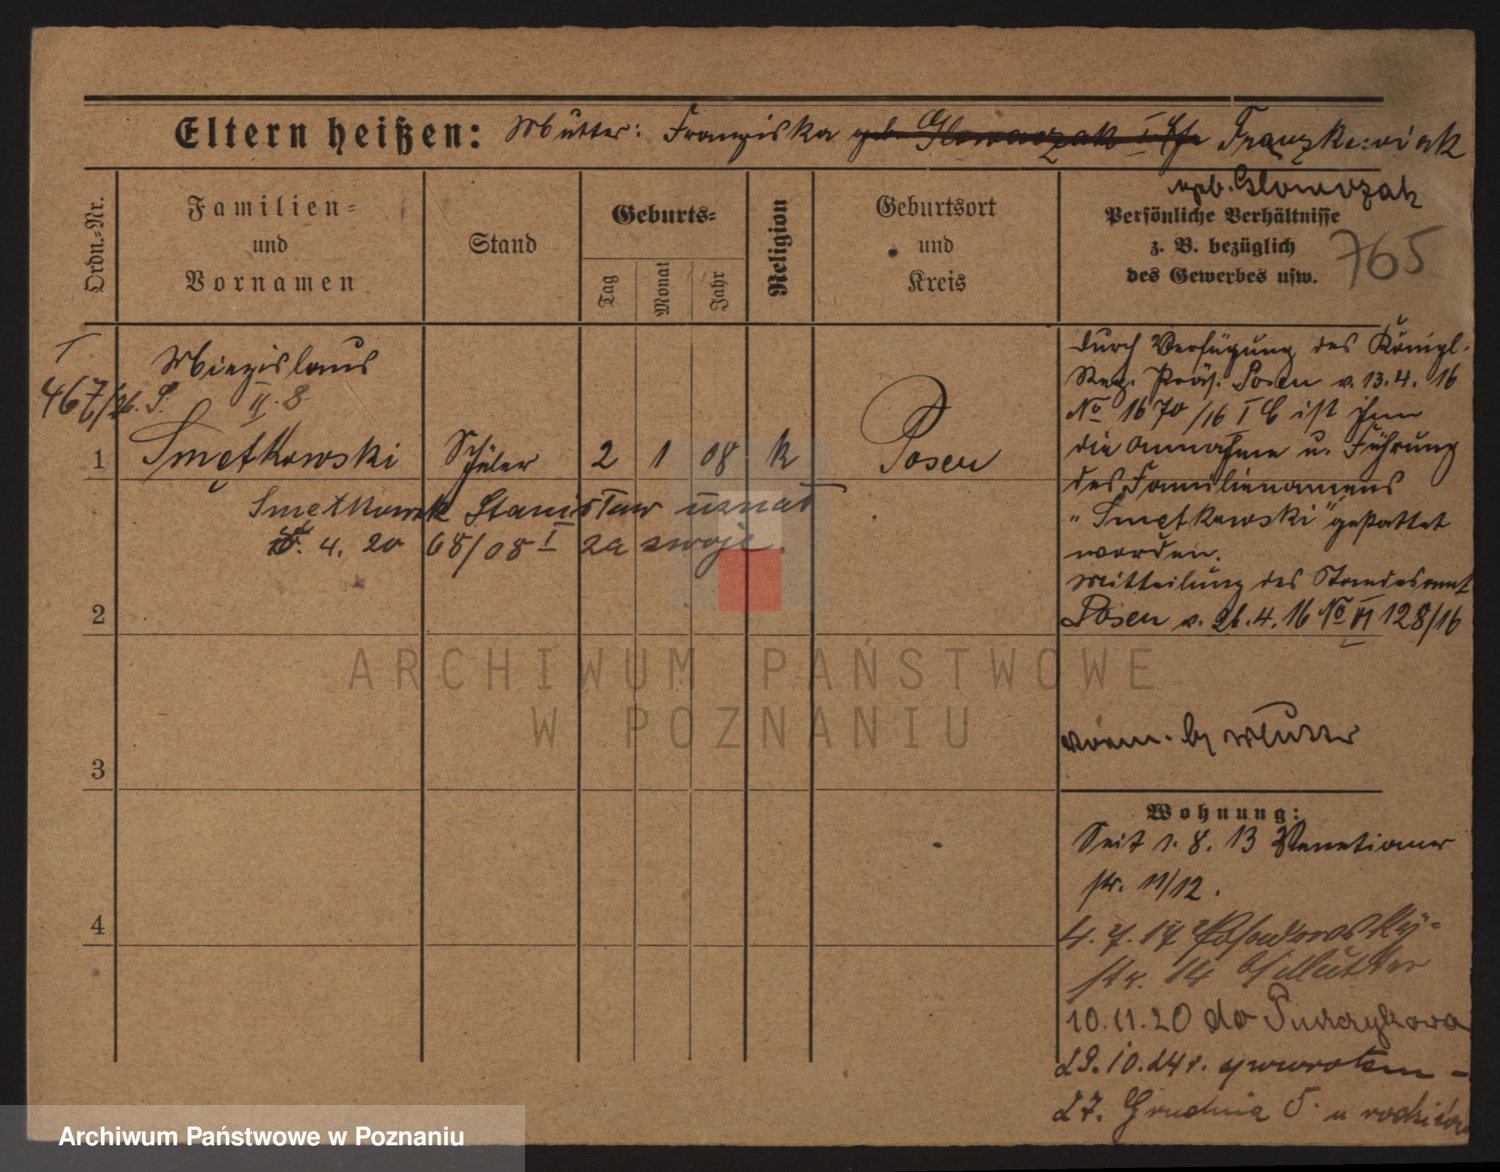 Eltern heißen: Mutter: Franziska geb. Glowaczak
geb. Glowaczak
Ordn.-Nr.
Familien=
und
Vornamen
Stand
Geburts=
Tag
Monat
Jahr
Religion
Geburtsort
und
Kreis
Persönliche Verhältnisse
z. B. bezüglich
des Gewerbes usw.
765
Miezislaus
467
II. 8
1 Smętkowski Schüler 2 1 08 k Posen
Smętkowiak Stanisław uznał
4. 20 68/08 I za swoje.
2
3
4
durch Verfügung des Königl.
Reg. Präs. Posen v. 13.4.16
No 1670/16 I C ist ihm
die Annahme u. Führung
des Familiennamens
"Smętkowski" gestattet
worden.
Mitteilung des Standesamt
Posen v. 26.4.16 No VI 128/16
Mutter
Wohnung:
Seit 1.8.13 Venetianer
str. 11/12.
4.7.17 Posadowsky=
str. 14 b/Mutter
10.11.20 do
29.10.24 r. z powrotem -
27. Grudnia 5 u rodziców
ARCHIWUM PAŃSTWOWE
W POZNANIU
Archiwum Państwowe w Poznaniu